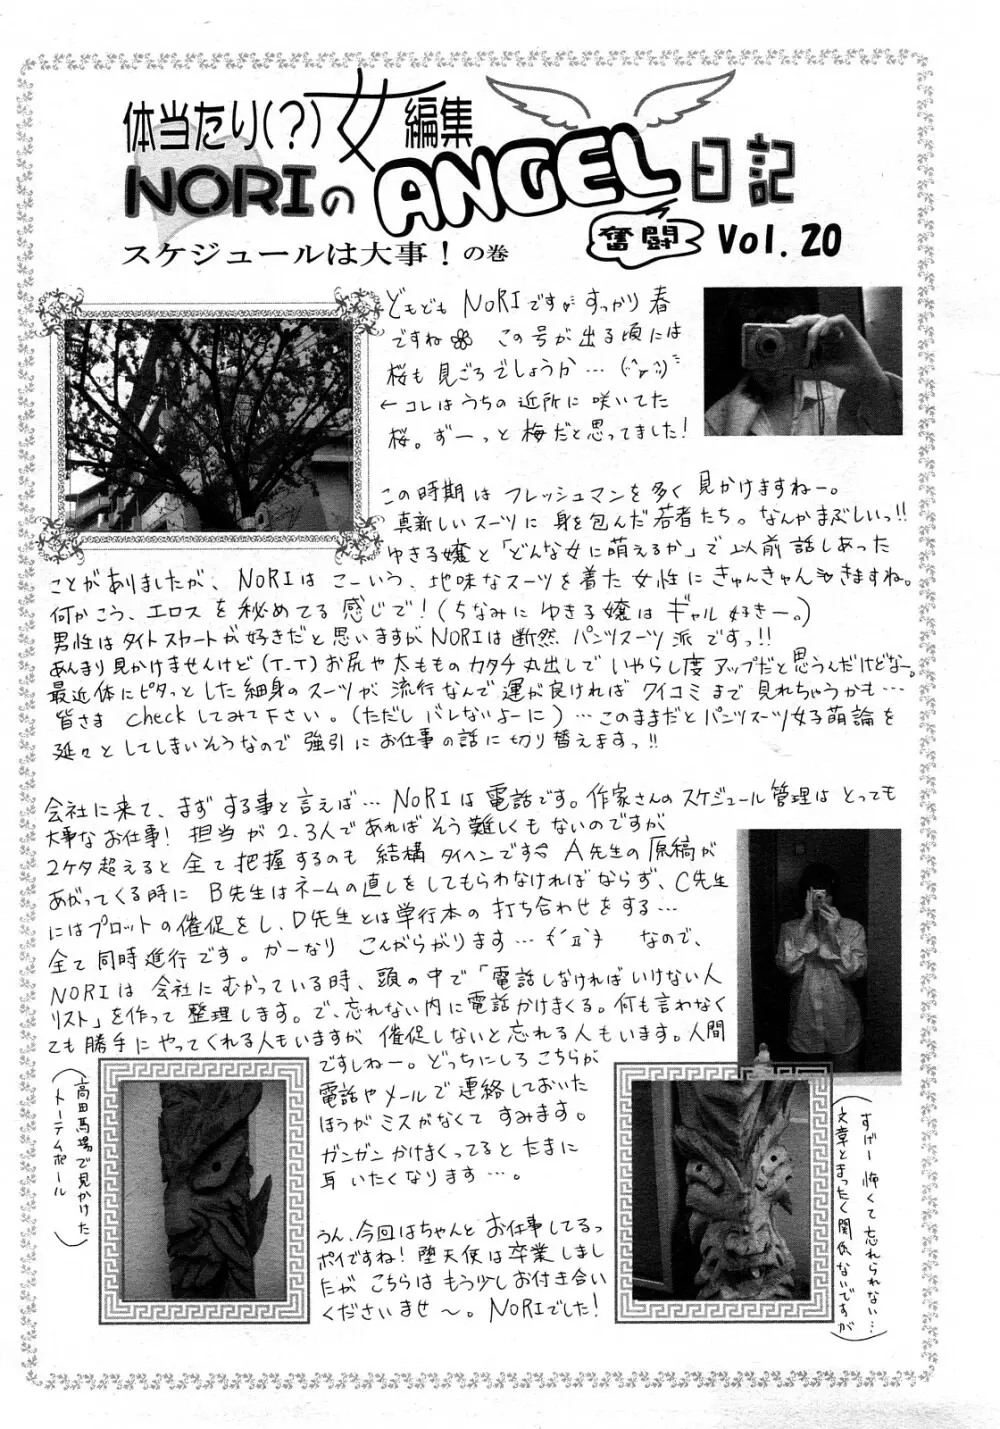 体当たり(?)女編集
NORIのANGEL日記
奮闘 Vol.20
スケジュールは大事！の巻
どもどもNORIです すっかり春
ですね この号が出る頃には
桜も見ごろでしょうか…
←コレはうちの近所に咲いてた
桜。ずーっと梅だと思ってました!
この時期はフレッシュマンを多く見かけますねー。
真新しいスーツに身を包んだ若者たち。なんかまぶしいっ!!
ゆき子嬢と「どんな女に萌えるか」で以前話しあった
ことがありましたが、NORIはこーいう、地味なスーツを着た女性にきゅんきゅんきますね。
何かこう、エロスを秘めてる感じで!(ちなみにゆき子嬢はギャル好きー。)
男性はタイトスカートが好きだと思いますがNORIは断然パンツスーツ派ですっ!!
あんまり見かけませんけど(T_T)お尻や太もものカタチ丸出しでいやらし度アップだと思うんだけどなー。
最近体にピタッとした細身のスーツが流行なんで運が良ければクイコミまで見れちゃうかも…
皆さまcheckしてみて下さい。(ただしバレないよーに)…このままだとパンツスーツ女子萌論を
延々としてしまいそうなので強引にお仕事の話に切り替えますっ!!
会社に来て、まずする事と言えば…NORIは電話です。作家さんのスケジュール管理はとっても
大事なお仕事! 担当が2、3人であればそう難しくもないのですが
2ケタ超えると全て把握するのも結構タイヘンです A先生の原稿が
あがってくる時にB先生はネームの直しをしてもらわなければならず、C先生
にはプロットの催促をし、D先生とは単行本の打ち合わせをする…
全て同時進行です。かーなりこんがらがります… なので、
NORIは会社にむかっている時、頭の中で「電話しなければいけない人
リスト」を作って整理します。で、忘れない内に電話かけまくる。何も言わなく
ても勝手にやってくれる人もいますが催促しないと忘れる人もいます。人間
ですしねー。どっちにしろこちらが
電話やメールで連絡しておいた
ほうがミスがなくてすみます。
ガンガンかけまくってるとたまに
耳いたくなります…。
うん、今回はちゃんとお仕事してるっ
ポイですね! 堕天使は卒業しまし
たがこちらはもう少しお付き合い
くださいませ〜。NORIでした!
(高田馬場で見かけた
トーテムポール)
(すげー怖くて忘れられない…
文章とまったく関係ないですが)